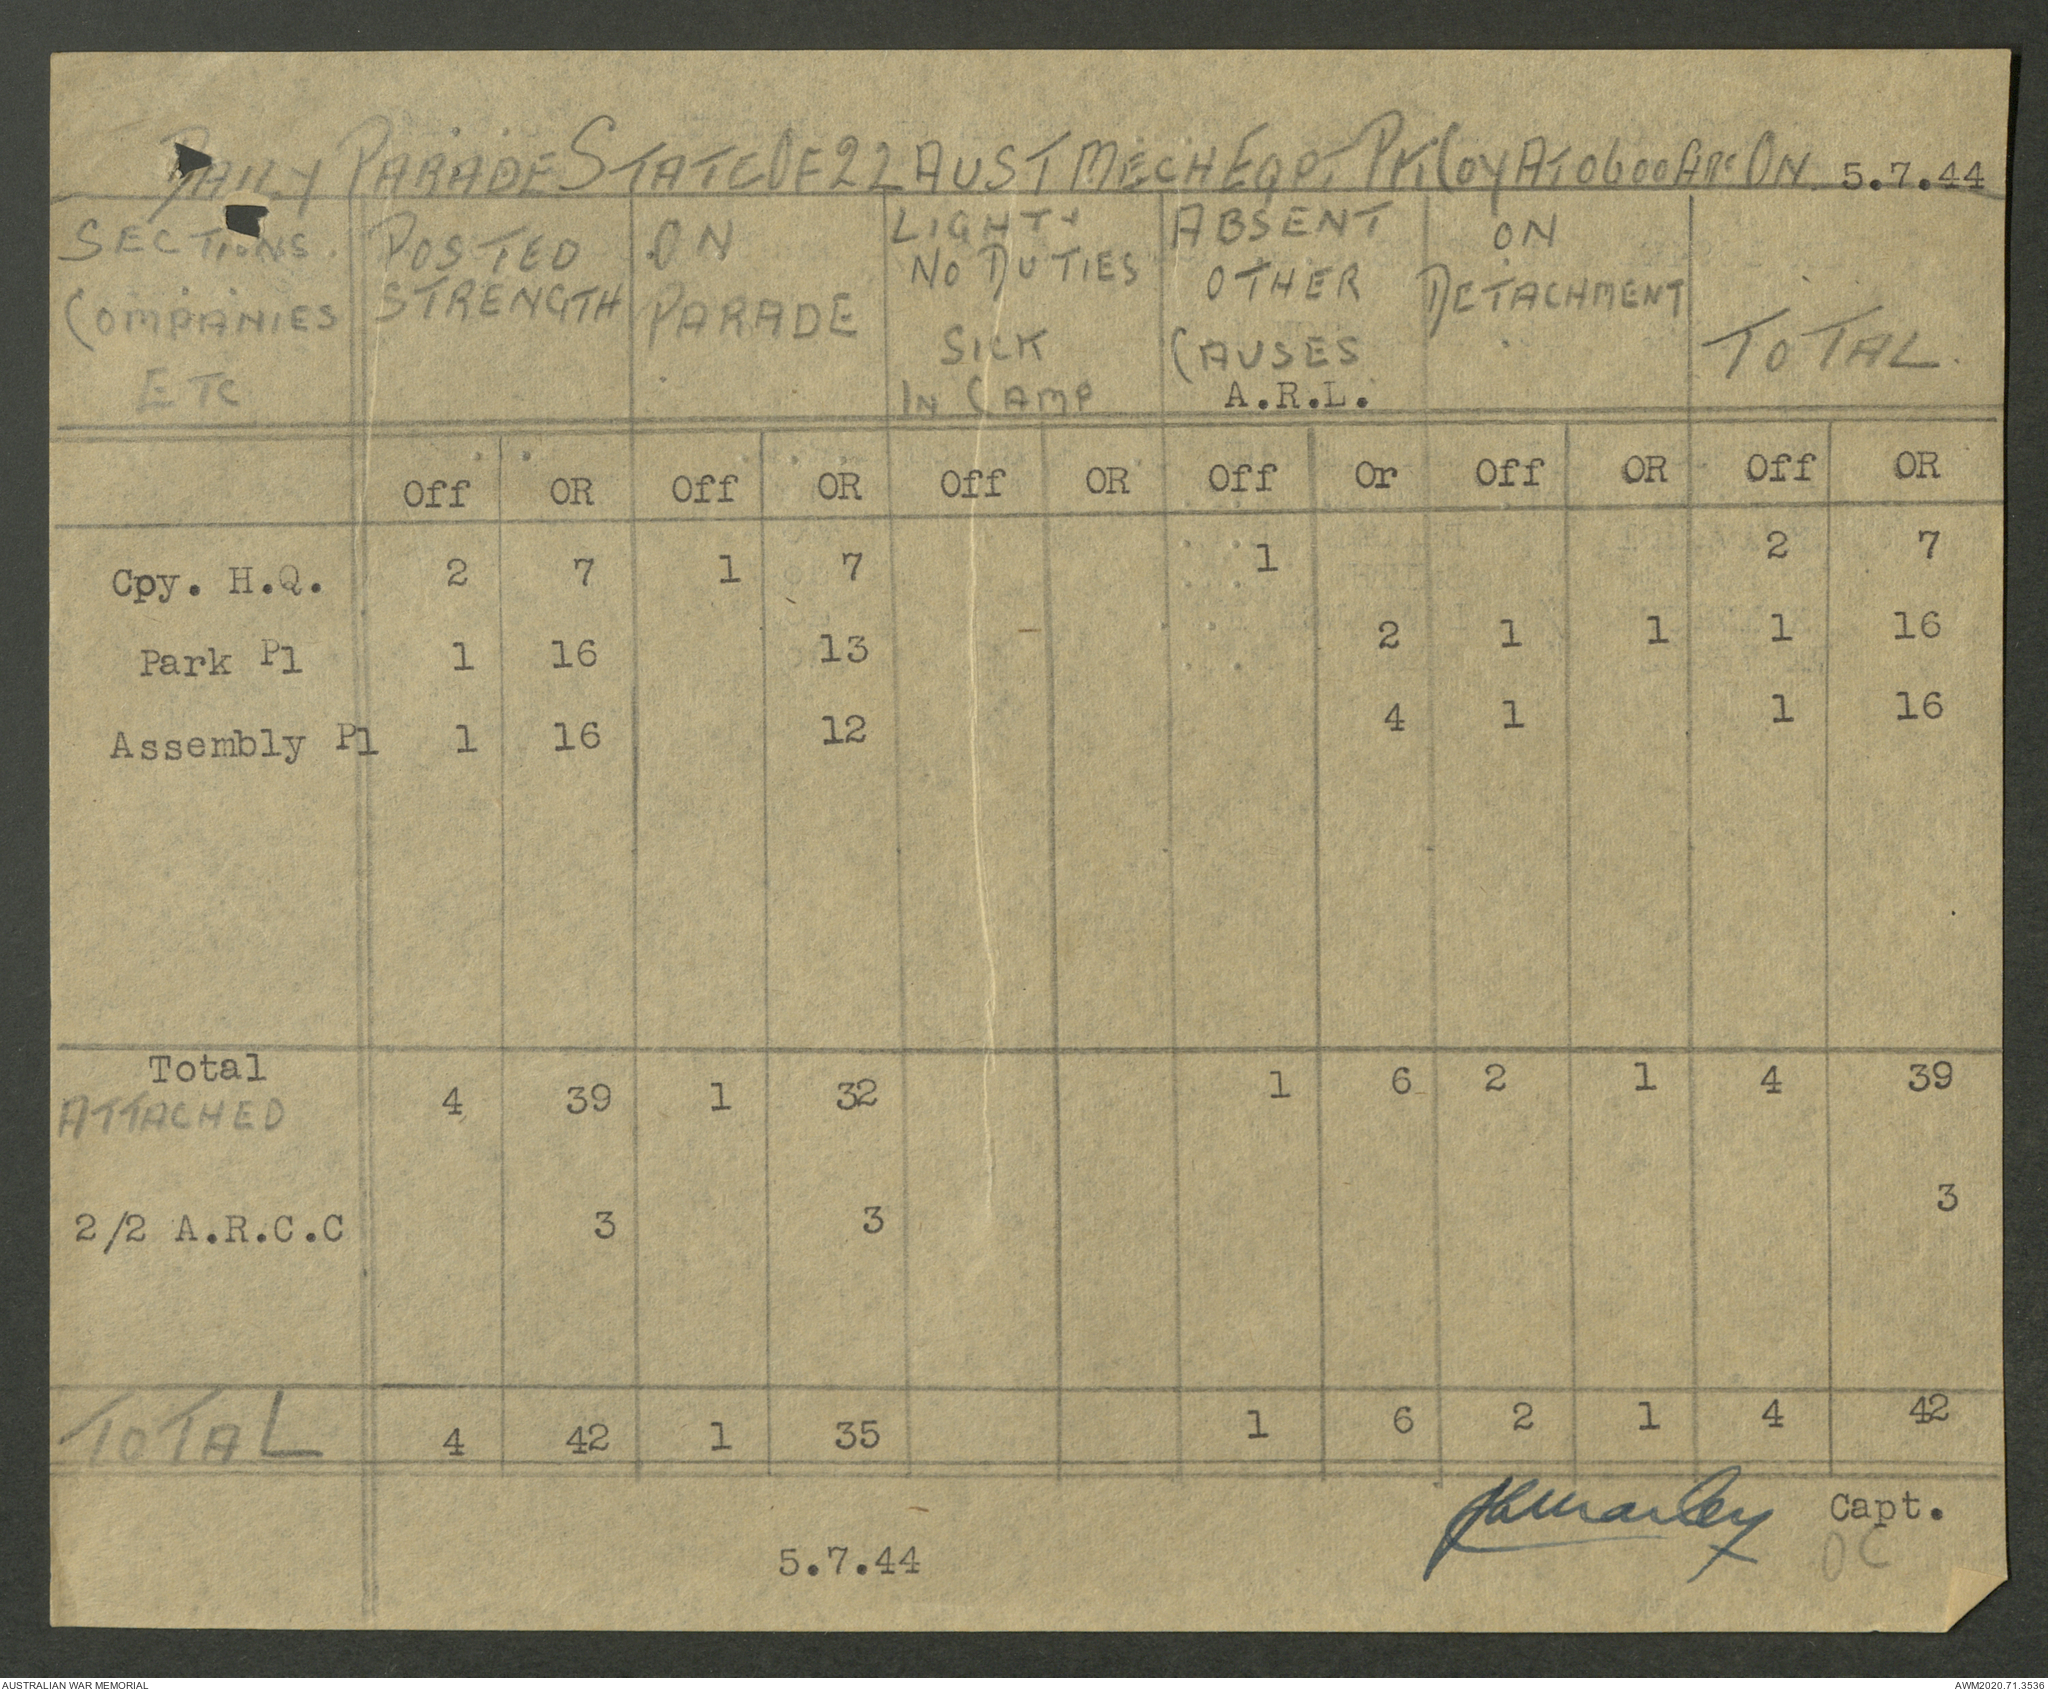 DAILY PARADE STATE OF 22 AUST MECH EQPT PK COY AT 0600 AM ON 5.7.44
SECTIONS. COMPANIES ETC | POSTED STRENGTH | ON PARADE | LIGHT + NO DUTIES SICK IN CAMP | ABSENT OTHER CAUSES A.R.L. | ON DETACHMENT | TOTAL.
Off OR Off OR Off OR Off Or Off OR Off OR
Cpy. H.Q. 2 7 1 7 1 2 7
Park Pl 1 16 13 2 1 1 1 16
Assembly Pl 1 16 12 4 1 1 16
Total 4 39 1 32 1 6 2 1 4 39
ATTACHED
2/2 A.R.C.C 3 3 3
TOTAL 4 42 1 35 1 6 2 1 4 42
Capt.
OC
5.7.44
AUSTRALIAN WAR MEMORIAL AWM2020.71.3536